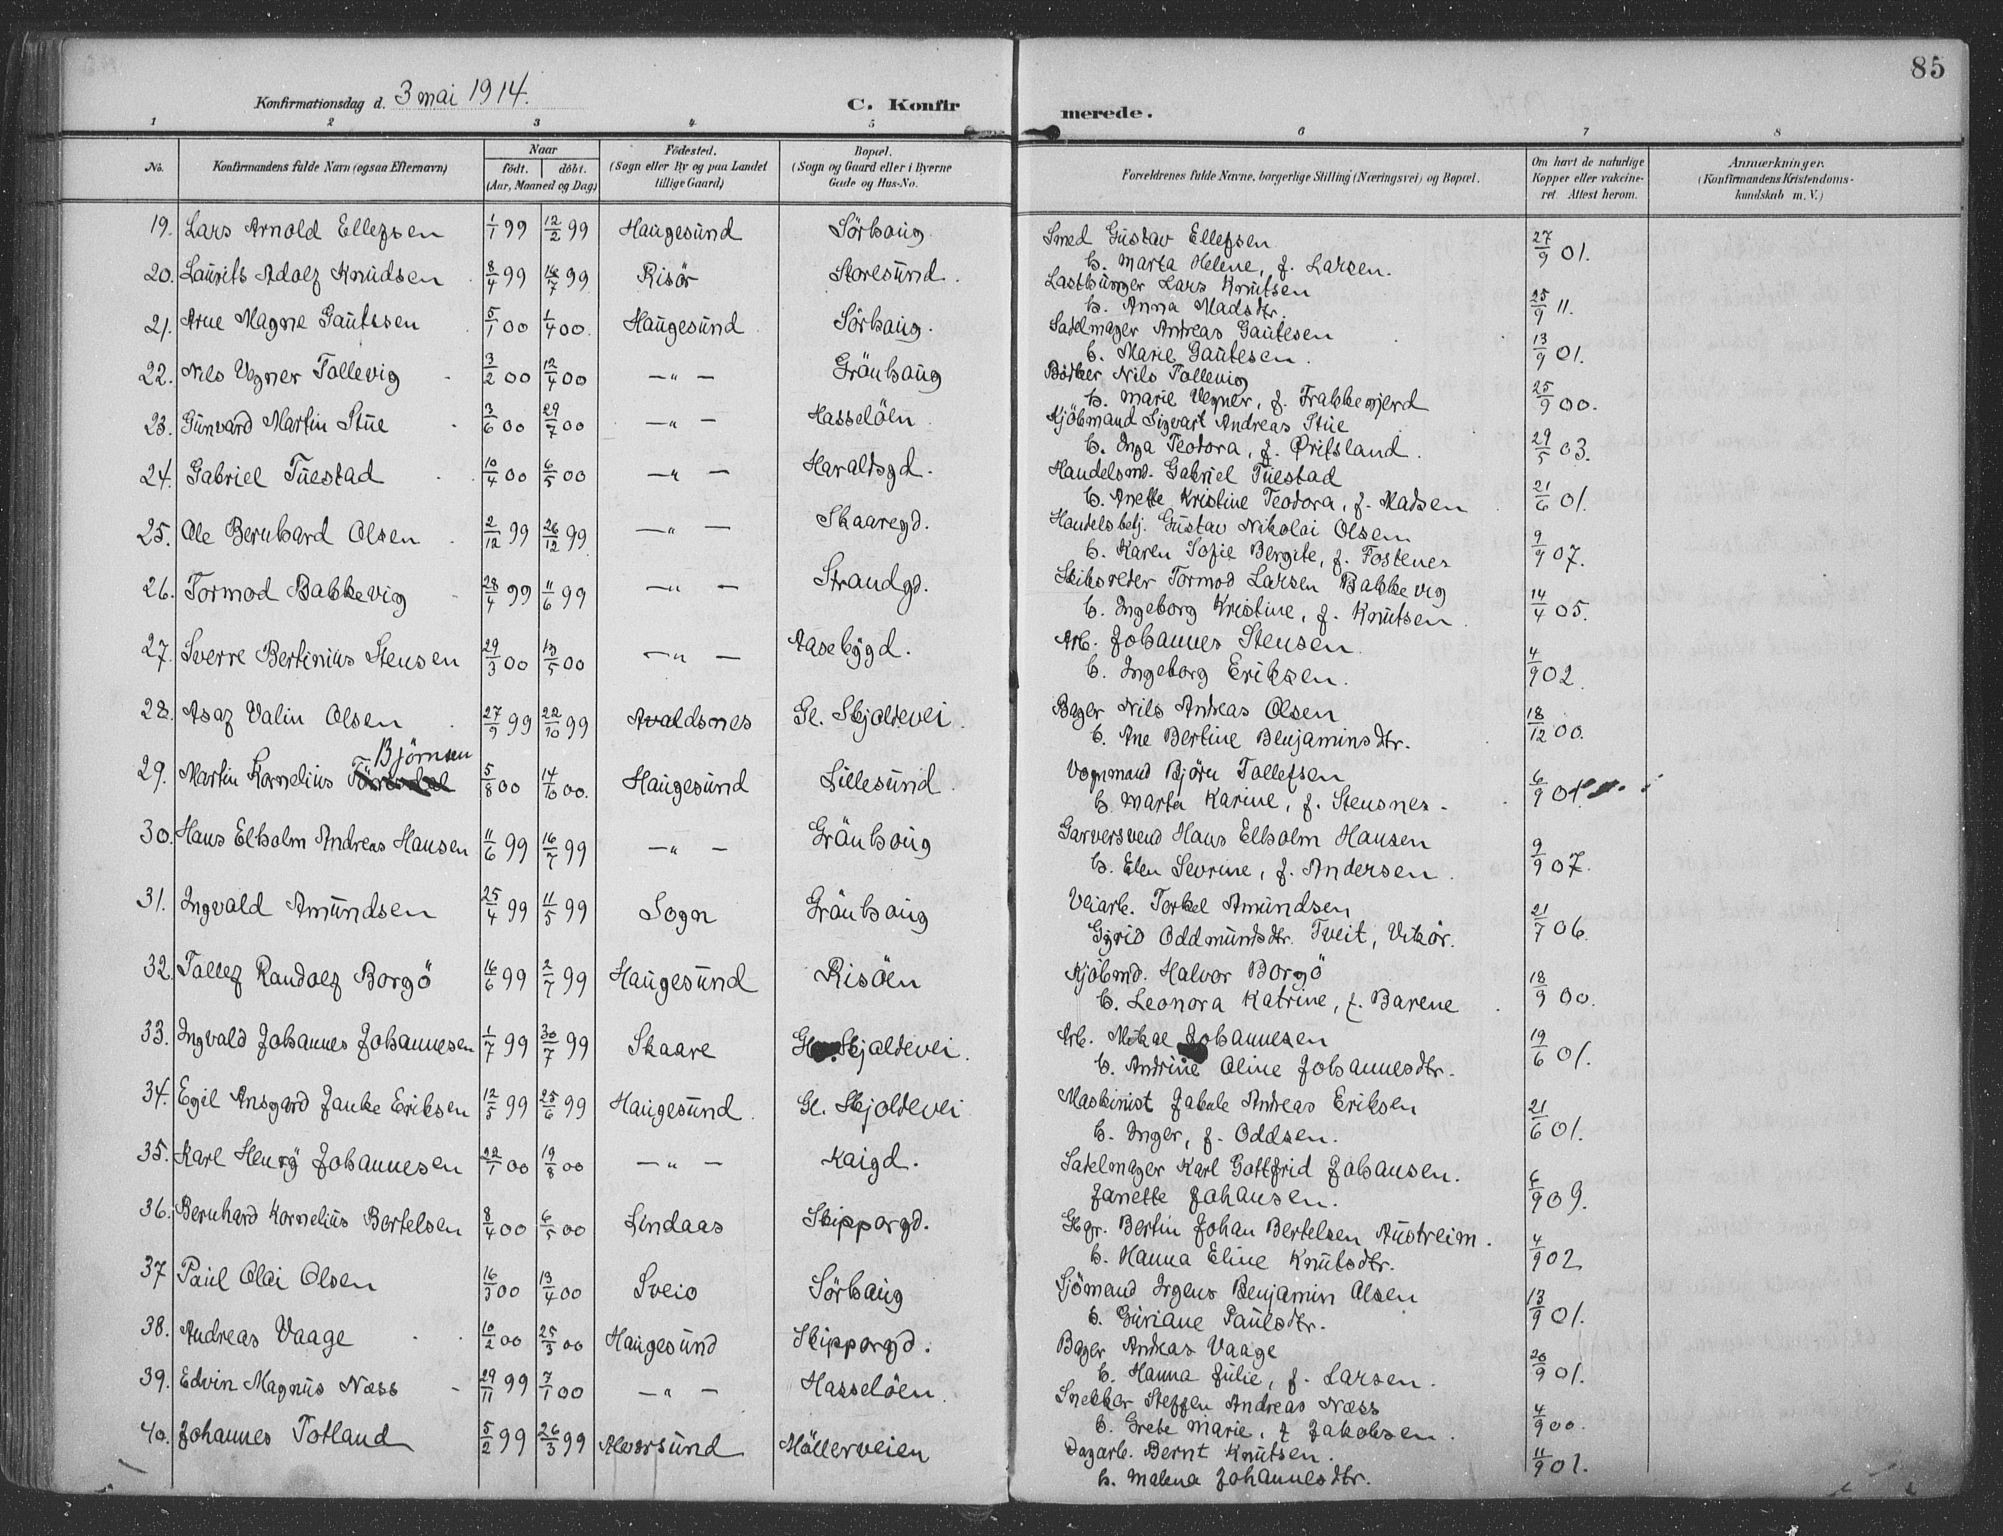 85
Konfirmationsdag d. 3 mai 1914. C. Konfirmerede.
1 2 3 4 5 6 7 8
No. Konfirmandens fulde Navn (ogsaa Efternavn) Naar født. døbt. (Aar, Maaned og Dag) Fødested. (Sogn eller By og paa Landet tillige Gaard) Bopæl. (Sogn og Gaard eller i Byerne Gade og Hus-No. Forældrenes fulde Navne, borgerlige Stilling (Næringsvei) og Bopæl. Om havt de naturlige Kopper eller vakcineret. Attest herom. Anmærkninger. (Konfirmandens Kristendomskundskab m. V.)
19. Lars Arnold Ellefsen 1/1 99 12/2 99 Haugesund Sörhaug Smed Gustav Ellefsen 27/9 01.
h. Marta Helene, f. Larsen.
20. Laurits Adolf Knudsen 8/4 99 16/7 99 Risör Storesund. Lastbunger Lars Knutsen 25/9 11.
h. Anna Madsdtr.
21. Arne Magne Gautssen 5/1 00 1/4 00. Haugesund Sörhaug. Sadelmager Andreas Gautesen 13/9 01.
h. Marie Gautesen.
22. Nils Vegner Tollevig 3/2 00 12/4 00 — „ — Gräuhaug Bödker Nils Tollevig 25/9 00.
h. Marie Vegner, f. Frakkenjerd
23. Gunvard Martin Stue 3/6 00 29/7 00 — „ — Hasselöen Kjöbmand Sigvart Andreas Stue 29/5 03.
h. Inga Teodora, f. Øritsland.
24. Gabriel Tuestad 10/4 00 6/5 00 — „ — Haraldsgd. Handelsm. Gabriel Tuestad 21/6 01.
h. Anette Kristine Teodora, f. Madsen
25. Ole Bernhard Olsen 2/12 99 26/12 99 — „ — Skaaregd. Handelsbetj. Gustav Nikolai Olsen 9/9 07.
h. Karen Sofie Bergite, f. Fostenes
26. Tormod Bakkevig 28/4 99 11/6 99 — „ — Strandgd. Skibsreder Tormod Larsen Bakkevig 14/4 05.
h. Ingeborg Kristine, f. Knutsen.
27. Sverre Bertinius Stensen 29/3 00 13/5 00 — „ — Aasebygd. Arb. Johannes Stensen. 4/9 02.
h. Ingeborg Eriksen.
28. Asaf Valin Olsen 27/9 99 22/10 99 Avaldsnes Gl. Skjoldevei. Bager Nils Andreas Olsen 18/12 00.
h. Ane Bertine Benjaminsdtr.
Björnsen
29. Martin Kornelius 5/8 00 14/10 00. Haugesund Lillesund. Vognmand Björn Tollefsen 6/9 01.
h. Marta Karine, f. Stensnes.
30. Hans Elholm Andreas Hansen 11/6 99 16/7 99 — „ — Gräuhaug Garversvend Hans Elholm Hansen 9/9 07.
h. Elen Sevrine, f. Andersen.
31. Ingvald Amundsen 25/4 99 11/5 99 Sogn Gräuhaug Veiarb. Torkel Amundsen 21/7 06.
Gyrid Oddmundsdtr. Tveit, Vikör.
32. Tollef Randolf Borgö 16/6 99 2/7 99 Haugesund Risöen Kjöbmd. Halvor Borgö 18/9 00.
h. Leonora Katrine, f. Barene
33. Ingvald Johannes Johannesen 1/7 99 30/7 99 Skaare Gl. Skjoldevei. Arb. Mikal Johannesen 19/6 01.
h. Andrine Oline Johannesdtr.
34. Egil Ansgard Janke Eriksen 12/5 99 25/6 99 Haugesund. Gl. Skjoldevei Maskinist Jakole Andreas Eriksen 21/6 01.
h. Inger, f. Oddsen.
35. Karl Henry Johannesen 22/1 00 19/8 00 — „ — Kaigd. Sadelmager Karl Gottfrid Johansen. 6/9 09.
Janette Johansen.
36. Bernhard Kornelius Bertelsen 8/4 00 6/5 00 Lindaas Skippergd. Gbgr. Bertin Johan Bertelsen Austreim. 4/9 02
h. Hanna Eline Knutsdtr.
37 Paul Olai Olsen 16/3 00 13/4 00 Sveio Sörhaug Sjömand Irgens Benjamin Olsen 13/9 01.
h. Guriane Paulsdtr.
38. Andreas Vaage 10/2 00 25/3 00 Haugesund Skippergd. Bager Andreas Vaage 20/9 01.
h. Hanna Julie, f. Larsen.
39. Edvin Magnus Næss 29/11 99 7/1 00 — „ — Hasselöen. Snekker Steffen Andreas Næss 4/9 00.
h. Grete Marie, f Jakobsen.
40. Johannes Totland 5/2 99 26/3 99 Alversund Möllerveien Dagarb. Bernt Knutsen. 11/9 01.
h. Malena Johannesdtr.